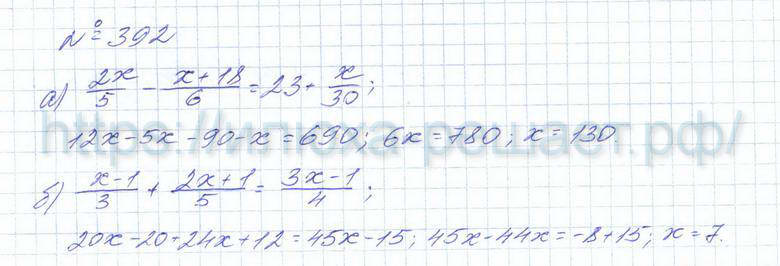 № 392
а) 2x/5 - x+18/6 = 23 + x/30;
12x - 5x - 90 - x = 690; 6x = 780; x = 130.
https://илюха-решает.рф/
б) x-1/3 + 2x+1/5 = 3x-1/4;
20x - 20 + 24x + 12 = 45x - 15; 45x - 44x = -8 + 15; x = 7.